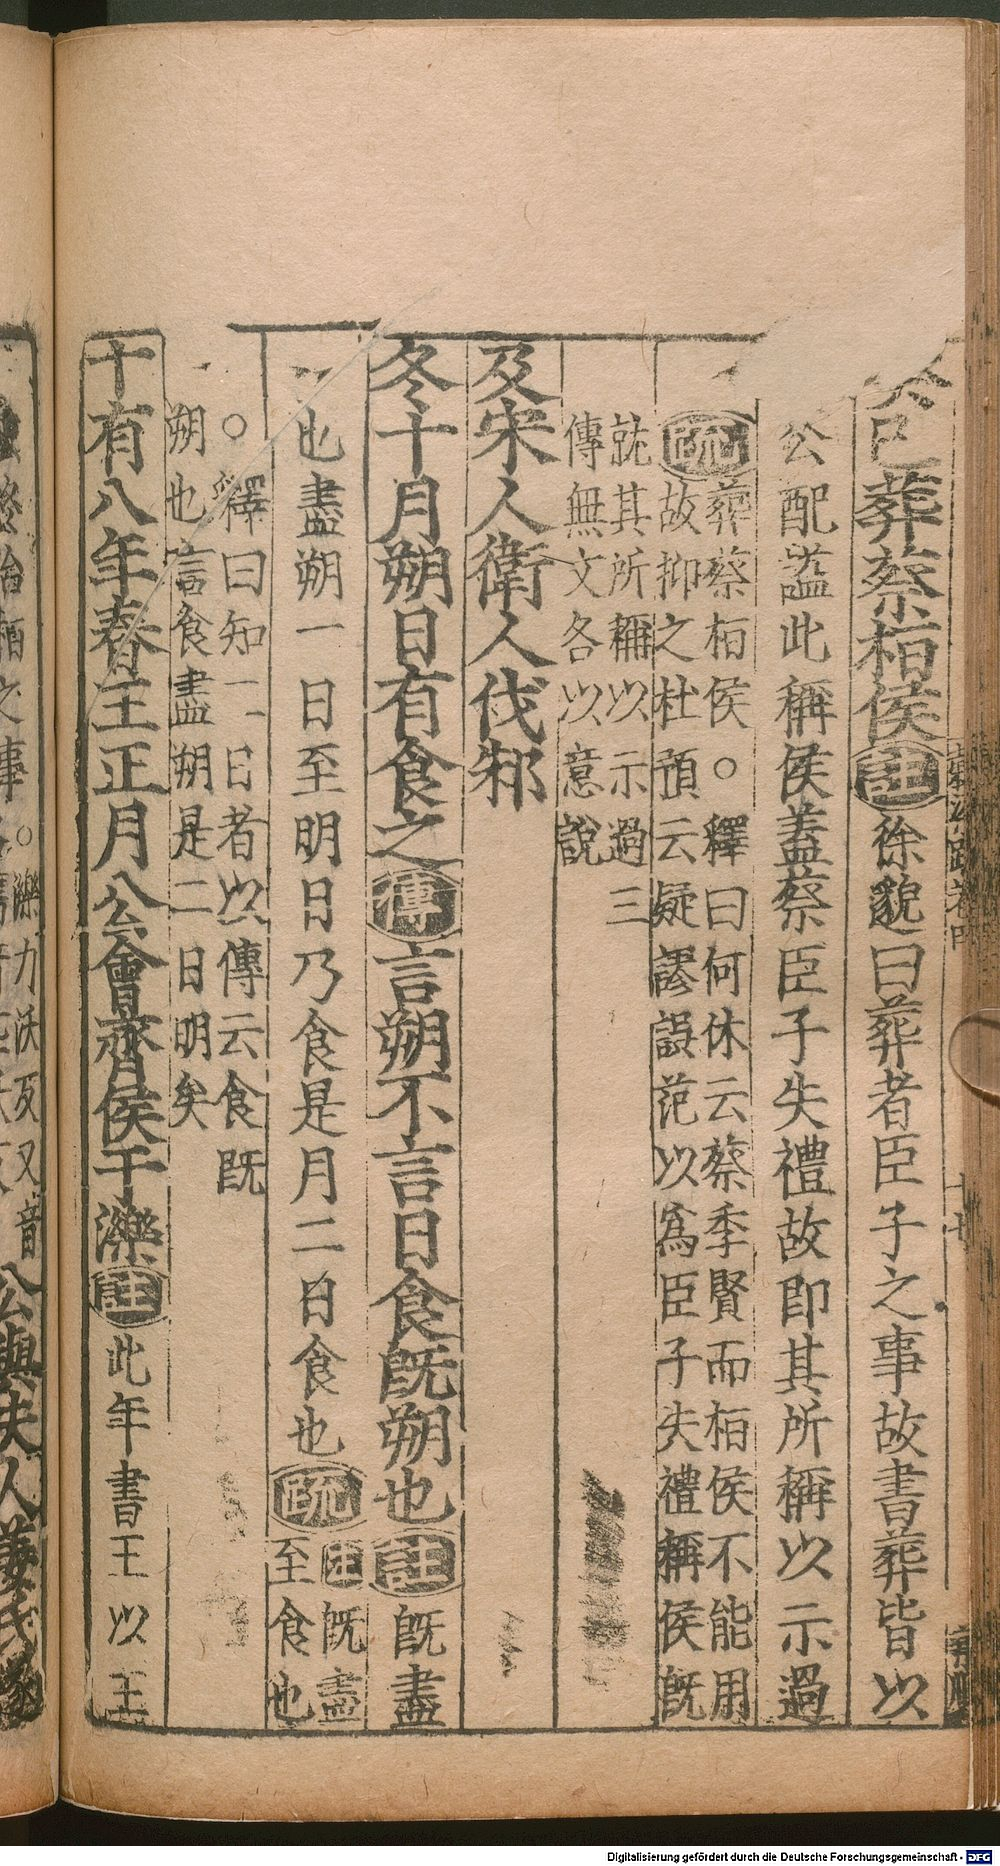 癸巳葬蔡桓侯註徐邈曰葬者臣子之事故書葬皆以
公配謚此稱侯蓋蔡臣子失禮故即其所稱以示過
疏葬蔡桓侯○釋曰何休云蔡季賢而桓侯不能用
故抑之杜預云疑謬誤范以爲臣子失禮稱侯既
就其所稱以示過三
傳無文各以意說
及宋人衛人伐邾
冬十月朔日有食之傳言朔不言日食既朔也註既盡
也盡朔一日至明日乃食是月二日食也疏注既盡
至食也
○釋曰知一日者以傳云食既
朔也言食盡朔是二日明矣
十有八年春王正月公會齊侯于濼註此年書王以王
濼力沃反又音
公與夫人姜氏遂
Digitalisierung gefördert durch die Deutsche Forschungsgemeinschaft - DFG